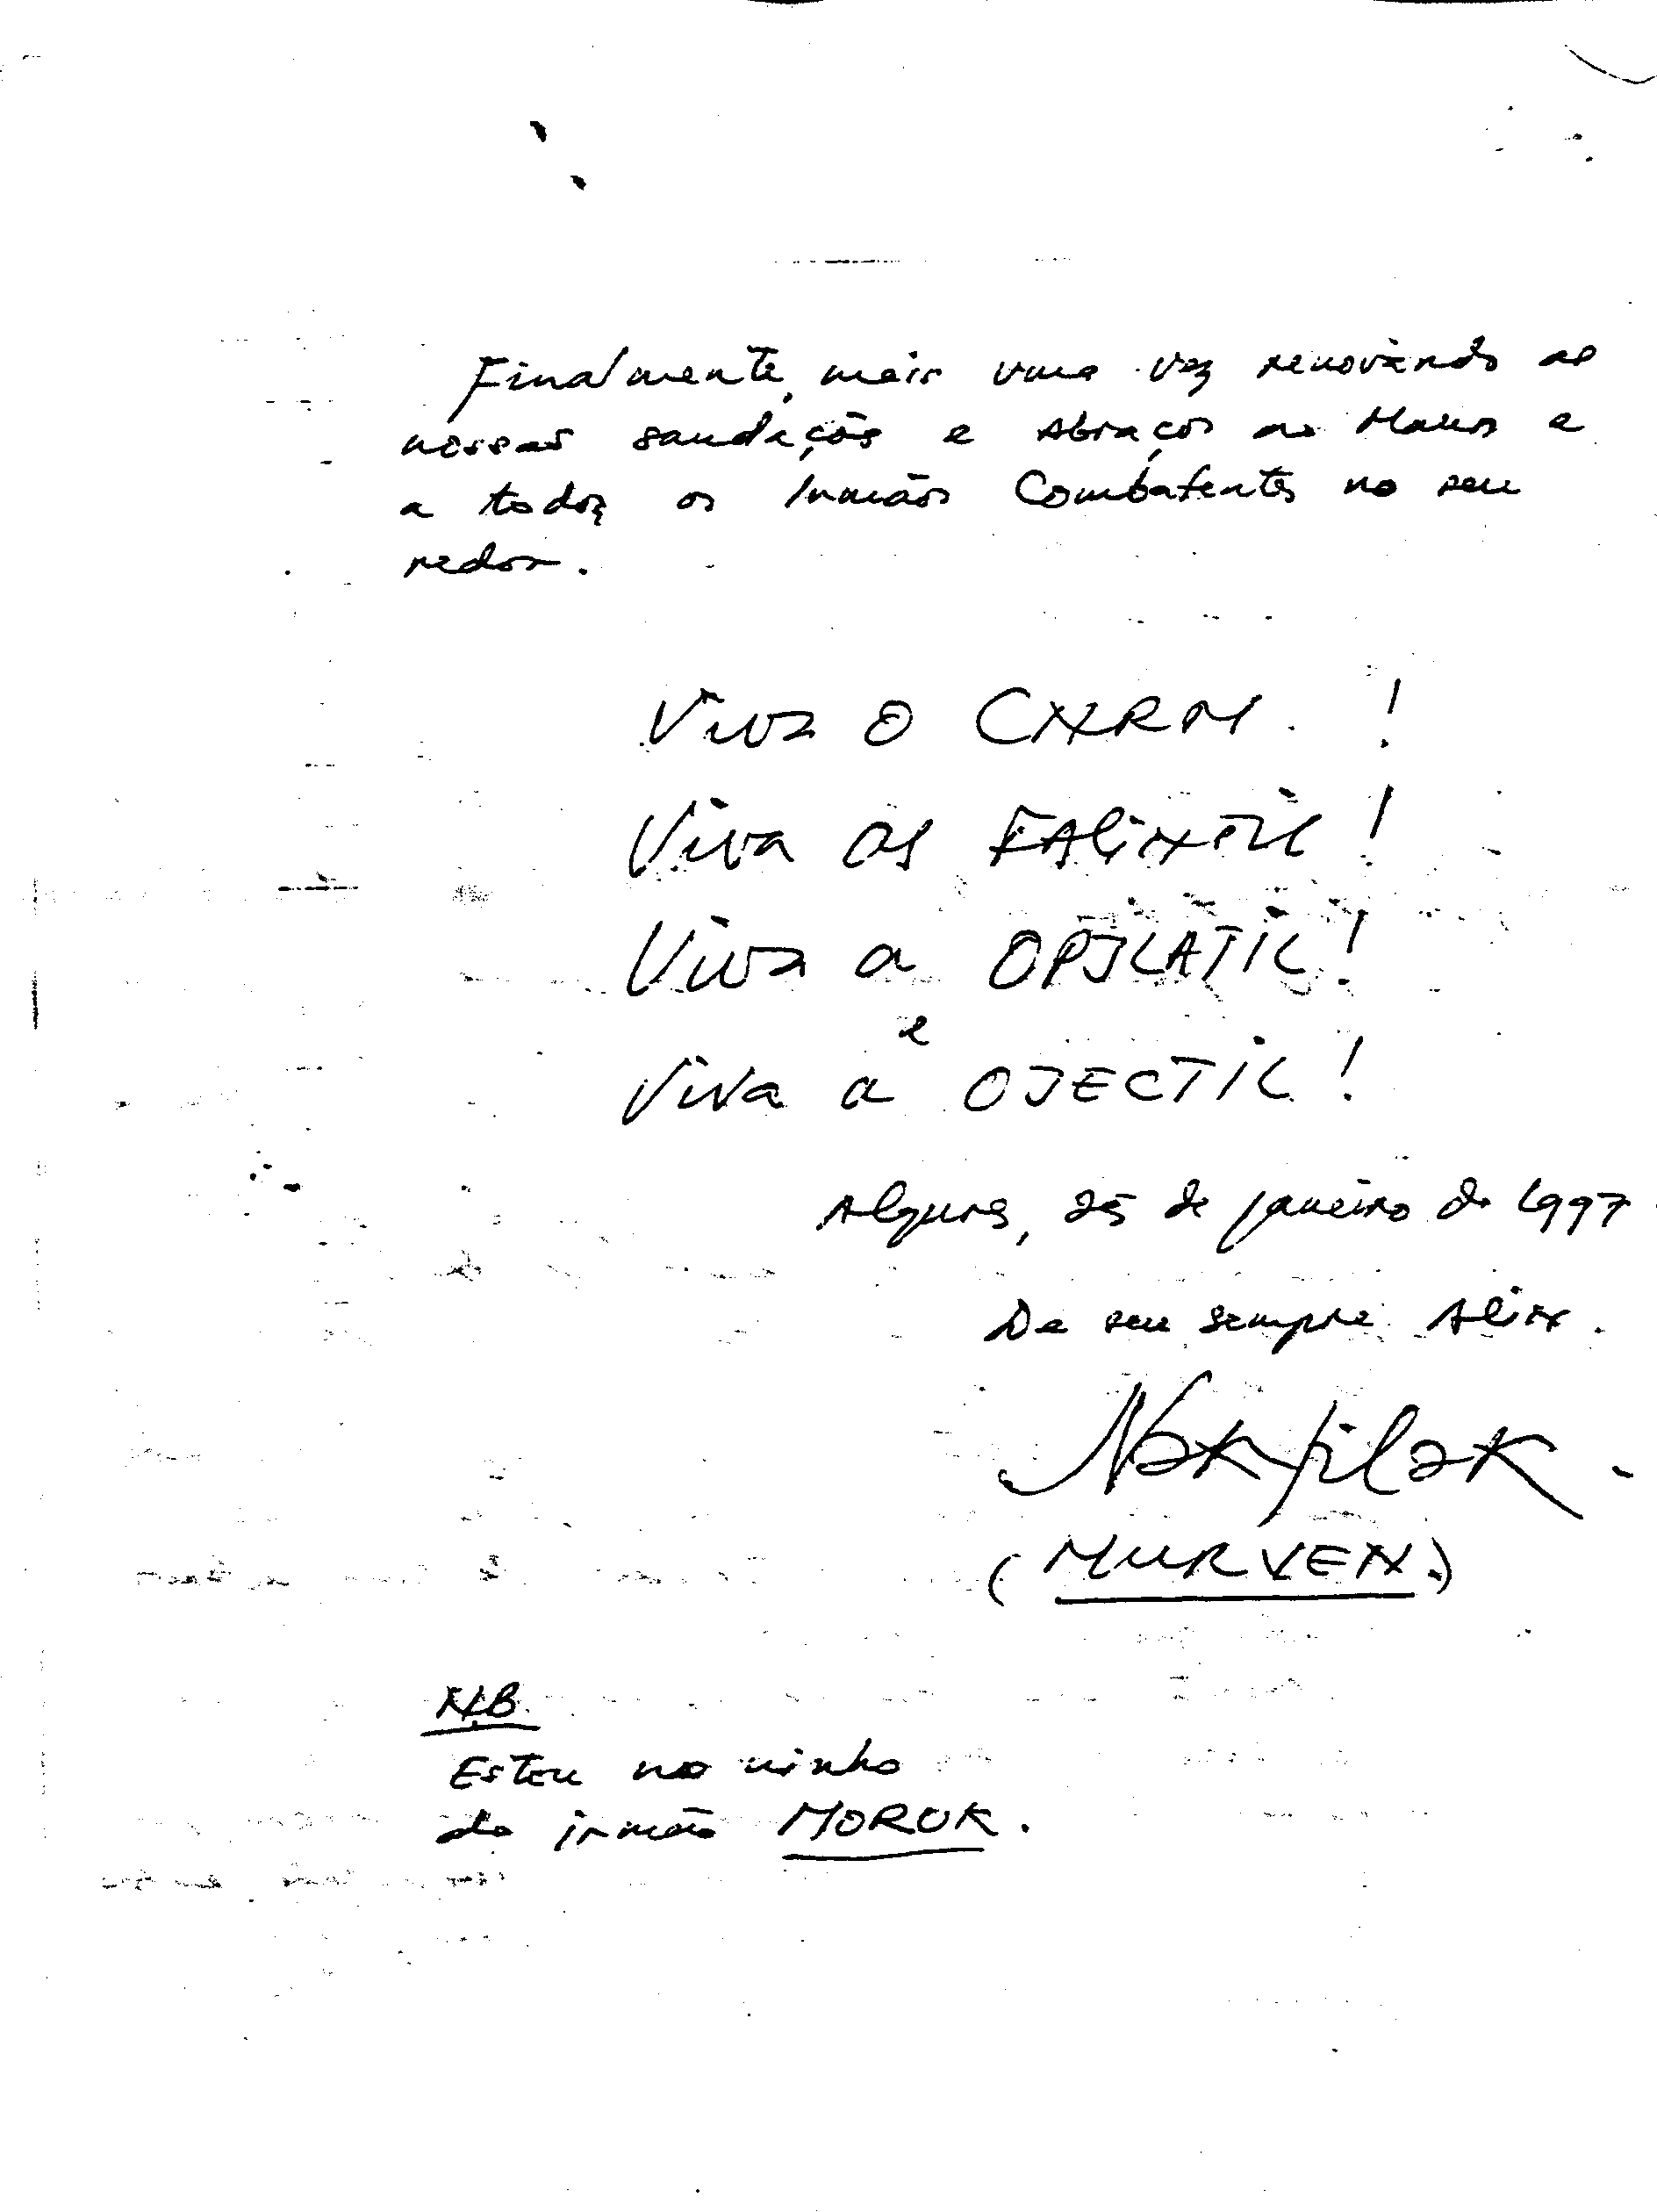 Finalmente, mais uma vez renovando as
nossas saudações e Abraços ao Maun e
a todos os Irmãos Combatentes no seu
redor.
Viva O CNRM. !
Viva as FALINTIL !
Viva a OPJLATIL !
e
Viva a OJECTIL !
Algures, 25 de janeiro de 1997
De seu sempre Alin.
Nakfilak.
(MURVEN.)
N.B.
Estou no ninho
do irmão MOROK.